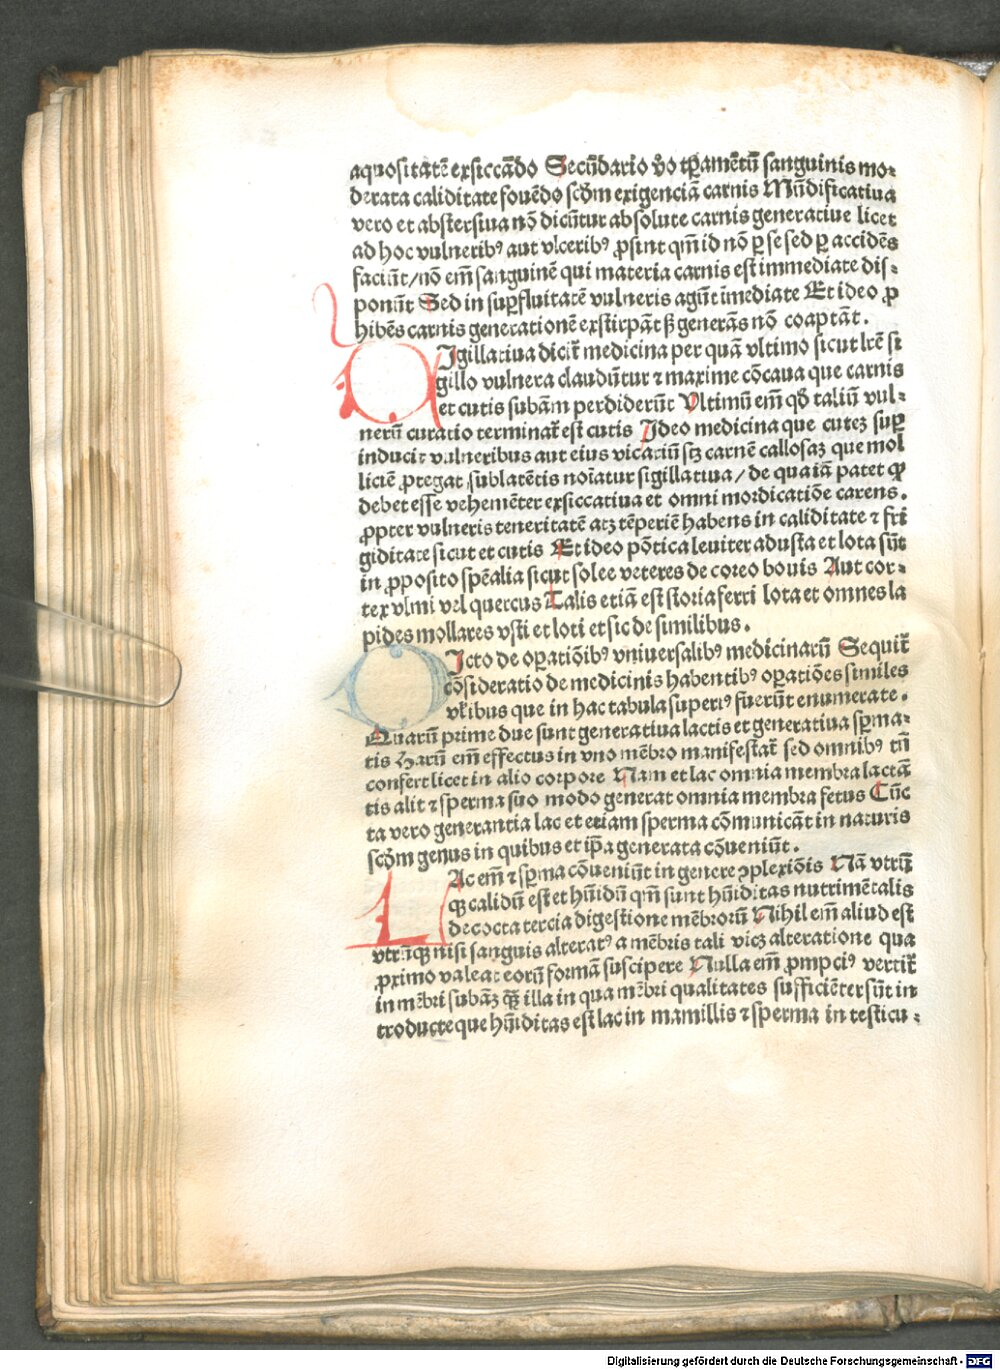 aquositatē exsiccādo Secūdario v̄o tꝑamētū sanguinis mo⸗
derata caliditate fouēdo scd̄m exigenciā carnis Mūdificatiua
vero et abstersiua nō dicūtur absolute carnis generatiue licet
ad hoc vulneribꝰ aut vlceribꝰ ꝓsint qm̄ id nō ꝑ se sed ꝑ accidēs
faciūt/nō em̄ sanguinē qui materia carnis est immediate dis⸗
ponūt Sed in suꝑfluitatē vulneris agūt īmediate Et ideo ꝓ
hibēs carnis generationē exstirpāt ꝫ generās nō coaptāt.
Igillatiua dicit̄ medicina per quā vltimo sicut lr̄e si
gillo vulnera claudūtur ⁊ maxime cōcaua que carnis
et cutis subām perdiderūt Vltimū em̄ qd̄ taliū vul⸗
nerū curatio terminat̄ est cutis Ideo medicina que cuteꝫ suꝑ
inducit vulneribus aut eius vicariū sꝫ carnē callosaꝫ que mol
liciē ꝓtegat sublatētis noīatur sigillatiua/de qua iā patet ꝙ
debet esse vehemēter exsiccatiua et omni mordicatiōe carens.
ꝓpter vulneris teneritatē atꝫ tēperiē habens in caliditate ⁊ fri
giditate sicut et cutis Et ideo pōtica leuiter adusta et lota sūt
in ꝓposito spēalia sicut solee veteres de coreo bouis Aut cor⸗
tex vlmi vel quercus Talis etiā est storia ferri lota et omnes la
pides mollares vsti et loti et sic de similibus.
Icto de oꝑatiōibꝰ vniuersalibꝰ medicinarū Sequit̄
cōsideratio de medicinis habentibꝰ oꝑatiōes similes
vl̄ibus que in hac tabula superiꝰ fuerūt enumerate.
Quarū prime due sunt generatiua lactis et generatiua sꝑma⸗
tis Harū em̄ effectus in vno mēbro manifestat̄ sed omnibꝰ tn̄
confert licet in alio corpore Nam et lac omnia membra lactā
tis alit ⁊ sperma suo modo generat omnia membra fetus Cūc
ta vero generantia lac et etiam sperma cōmunicāt in naturis
scd̄m genus in quibus et ip̄a generata cōueniūt.
Ac em̄ ⁊ sꝑma cōueniūt in genere ꝯplexiōis Nā vtrū
qꝫ calidū est et hūidū qm̄ sunt hūiditas nutrimētalis
decocta tercia digestione mēbrorū Nihil em̄ aliud est
vtrūqꝫ nisi sanguis alteratꝰ a mēbris tali viꝫ alteratione qua
ꝓximo valeat eorū formā suscipere Nulla em̄ ꝓmpciꝰ vertit̄
in mēbri subāꝫ qꝫ illa in qua mēbri qualitates sufficiēter sūt in
troducte que hūiditas est lac in mamillis ⁊ sperma in testicu⸗
Digitalisierung gefördert durch die Deutsche Forschungsgemeinschaft - DFG